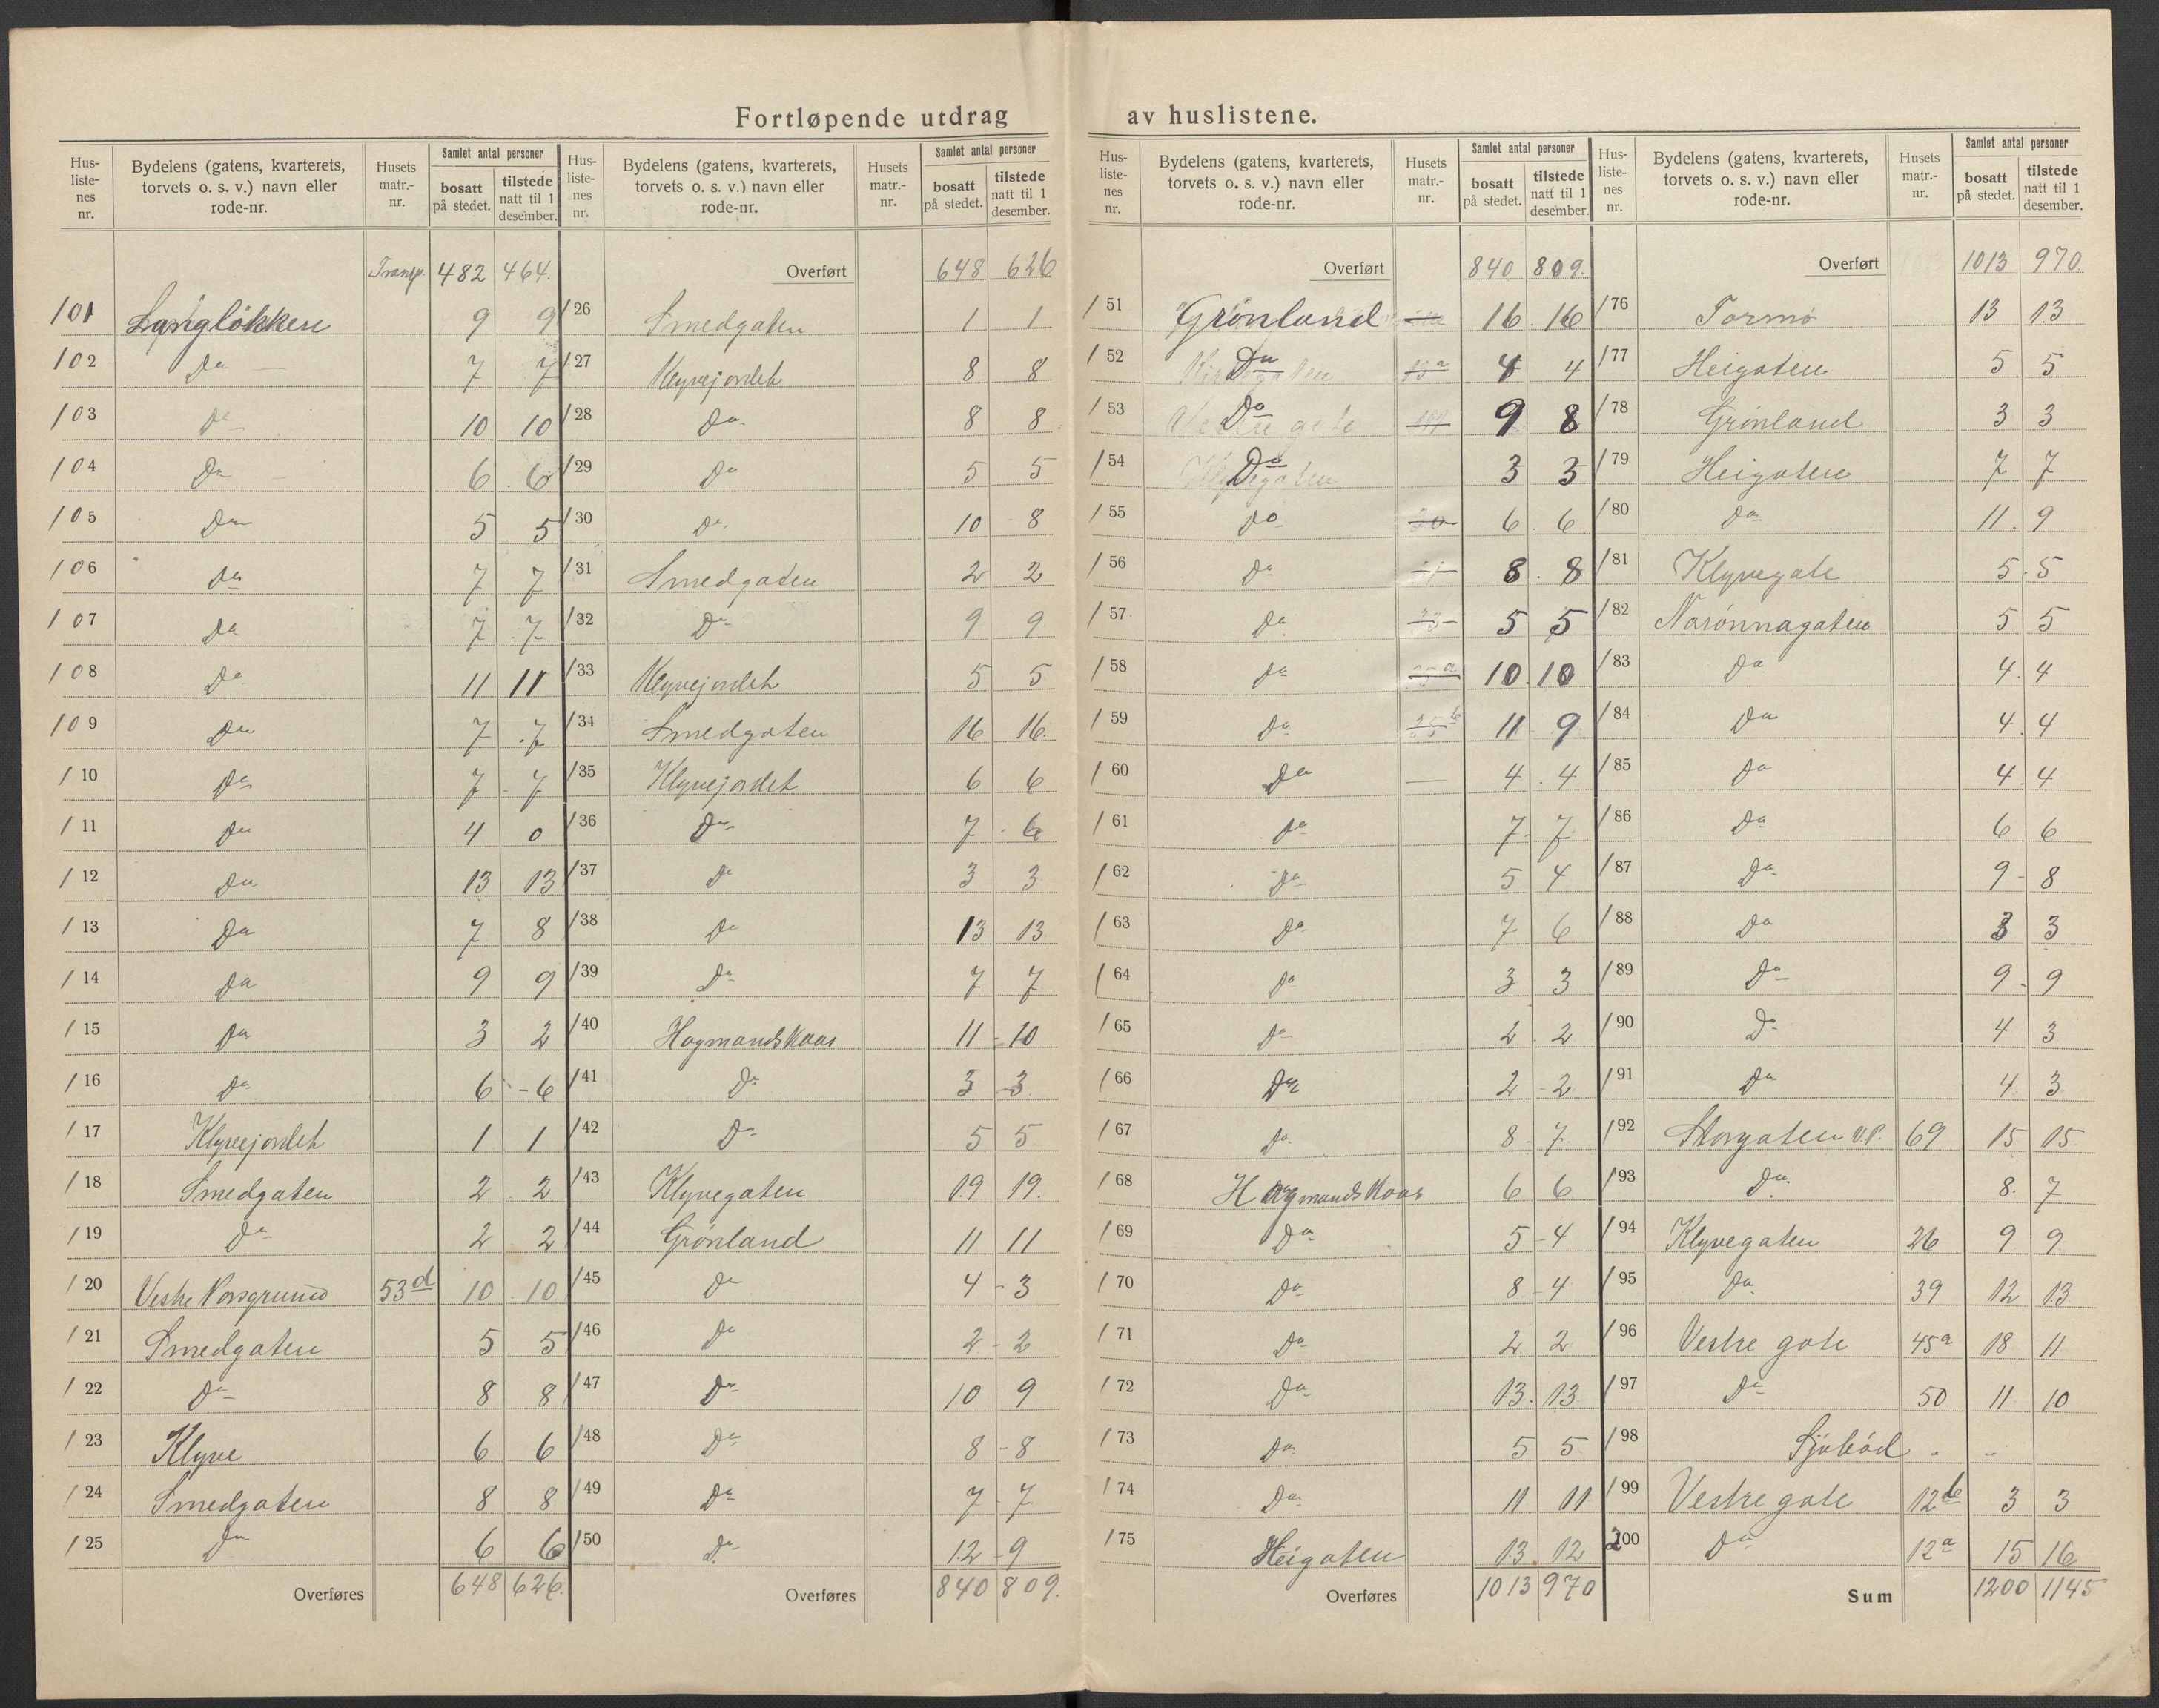 Fortløpende utdrag av huslistene.
Hus-liste-nes nr. | Bydelens (gatens, kvarterets, torvets o. s. v.) navn eller rode-nr. | Husets matr.-nr. | Samlet antal personer | bosatt på stedet. | tilstede natt til 1 desember.
Transp. 482 464.
101 Langløkken 9 9
102 Do 7 7
103 Do 10 10
104 Do 6 6
105 Do 5 5
106 Do 7 7
107 Do 7 7
108 Do 11 11
109 Do 7 7
110 Do 7 7
111 Do 4 0
112 Do 13 13
113 Do 7 8
114 Do 9 9
115 Do 3 2
116 Do 6 - 6
117 Klyvejordet 1 1
118 Smedgaten 2 2
119 Do 2 2
120 Vestre Porsgrund 53d 10 10
121 Smedgaten 5 5
122 Do 8 8
123 Klyve 6 6
124 Smedgaten 8 8
125 Do 6 6
Overføres 648 626.
Hus-liste-nes nr. | Bydelens (gatens, kvarterets, torvets o. s. v.) navn eller rode-nr. | Husets matr.-nr. | Samlet antal personer | bosatt på stedet. | tilstede natt til 1 desember.
Overført 648 626
126 Smedgaten 1 1
127 Klyvejordet 8 8
128 Do. 8 8
129 Do 5 5
130 Do. 10 - 8
131 Smedgaten 2 2
132 Do 9 9
133 Klyvejordet 5 5
134 Smedgaten 16 16.
135 Klyvejordet 6 6
136 Do 7 - 6
137 Do 3 3
138 Do 13 13
139 Do 7 7
140 Hagmandskaas 11 - 10
141 Do 3 - 3
142 Do 5 5
143 Klyvegaten 19 19.
144 Grønland 11 11
145 Do 4 - 3
146 Do 2 - 2
147 Do 10 9
148 Do 8 - 8
149 Do 7 - 7
150 Do 12 - 9
Overføres 840 809.
Hus-liste-nes nr. | Bydelens (gatens, kvarterets, torvets o. s. v.) navn eller rode-nr. | Husets matr.-nr. | Samlet antal personer | bosatt på stedet. | tilstede natt til 1 desember.
Overført 840 809.
151 Grønland 16 16
152 Do 4 4
153 Do 9 8
154 Do 3 3
155 Do 6 6
156 Do 8 8
157 Do 5 5
158 Do 10 10
159 Do 11 9
160 Do — 4 4
161 Do 7 7
162 Do 5 4
163 Do 7 6
164 Do 3 3
165 Do 2 2
166 Do 2 - 2
167 Do 8 - 7
168 Hagmandskaas 6 6
169 Do 5 - 4
170 Do 8 - 4
171 Do 2 2
172 Do 13 13
173 Do 5 5
174 Do 11 11
175 Heigaten 13 12
Overføres 1013 970
Hus-liste-nes nr. | Bydelens (gatens, kvarterets, torvets o. s. v.) navn eller rode-nr. | Husets matr.-nr. | Samlet antal personer | bosatt på stedet. | tilstede natt til 1 desember.
Overført 1013 970.
176 Tormo 13 13
177 Heigaten 5 5
178 Grønland 3 3
179 Heigaten 7 7
180 Do 11 9
181 Klyvegate 5 5
182 Norønnagaten 5 5
183 Do 4 4
184 Do 4 4
185 Do 4 4
186 Do 6 6
187 Do 9 - 8
188 Do 3 3
189 Do 9 - 9
190 Do 4 3
191 Do 4 3
192 Storgaten V.P. 69 15 15
193 Do. 8. 7
194 Klyvegaten 26 9 9
195 Do. 39 12 13
196 Vestre gate 45a 18 11
197 Do 50 11 10
198 Sjøbod - -
199 Vestre gate 12b 3 3
200 Do 12a 15 16
Sum 1200 1145